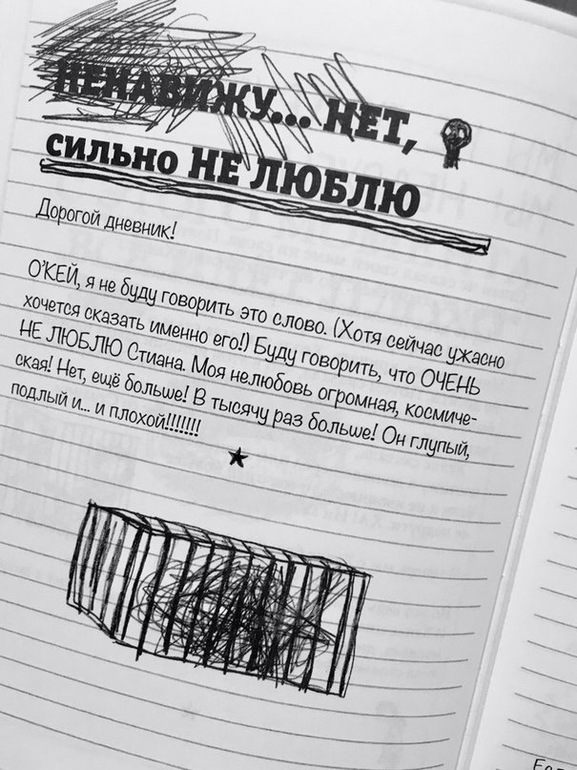 НЕНАВИЖУ... НЕТ,
сильно НЕ ЛЮБЛЮ
Дорогой дневник!
О'КЕЙ, я не буду говорить это слово. (Хотя сейчас ужасно
хочется сказать именно его!) Буду говорить, что ОЧЕНЬ
НЕ ЛЮБЛЮ Стиана. Моя нелюбовь огромная, космиче-
ская! Нет, ещё больше! В тысячу раз больше! Он глупый,
подлый и... и плохой!!!!!!!